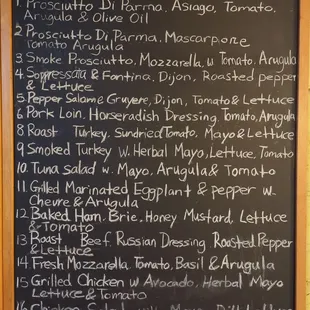 1. Prosciutto Di Parma, Asiago, Tomato,
Arugula & Olive Oil
2 Prosciutto Di Parma, Mascarpone
Tomato Arugula
3 Smoke Prosciutto, Mozzarella w Tomato, Arugula
4 Soppressata & Fontina, Dijon, Roasted pepper
& Lettuce
5 Pepper Salame Gruyere, Dijon, Tomato & Lettuce
6 Pork Loin, Horseradish Dressing, Tomato, Arugula
8 Roast Turkey, Sundried Tomato, Mayo & Lettuce
9 Smoked Turkey w. Herbal Mayo, Lettuce, Tomato
10 Tuna Salad w. Mayo, Arugula & Tomato
11 Grilled Marinated Eggplant & pepper w.
Chevre & Arugula
12 Baked Ham, Brie, Honey Mustard, Lettuce
& Tomato
13 Roast Beef Russian Dressing, Roasted Pepper
& Lettuce
14. Fresh Mozzarella, Tomato, Basil & Arugula
15 Grilled Chicken w Avocado, Herbal Mayo
Lettuce & Tomato
16 Chicken Salad w. Mayo